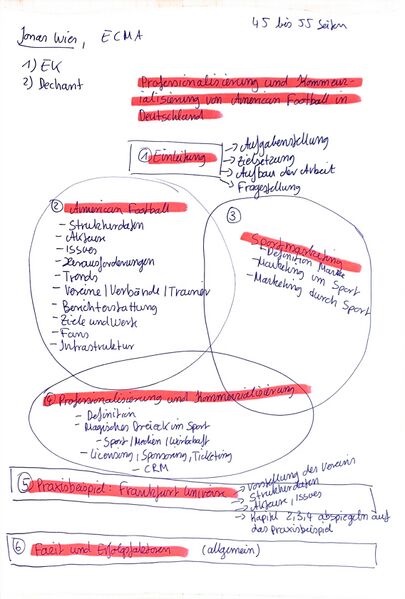 45 bis 55 Seiten
Jonas Wier, ECMA
1) EK
2) Dechant
Professionalisierung und Kommerz-
ialisierung von American Football in
Deutschland
① Einleitung
→ Aufgabenstellung
→ Zielsetzung
→ Aufbau der Arbeit
→ Fragestellung
② American Football
- Strukturdaten
- Akteure
- Issues
- Herausforderungen
- Trends
- Vereine / Verbände / Trainer
- Berichterstattung
- Ziele und Werte
- Fans
- Infrastruktur
③
Sportmarketing
- Definition Marke
- Marketing im Sport
- Marketing durch Sport
④ Professionalisierung und Kommerzialisierung
- Definition
- Magisches Dreieck im Sport
- Sport / Medien / Wirtschaft
- Licensing, Sponsoring, Ticketing
- CRM
⑤ Praxisbeispiel: Frankfurt Universe
→ Vorstellung des Vereins
→ Strukturdaten
→ Akteure, Issues
→ Kapitel 2,3,4 abspiegeln auf
das Praxisbeispiel
⑥ Fazit und Erfolgsfaktoren (allgemein)